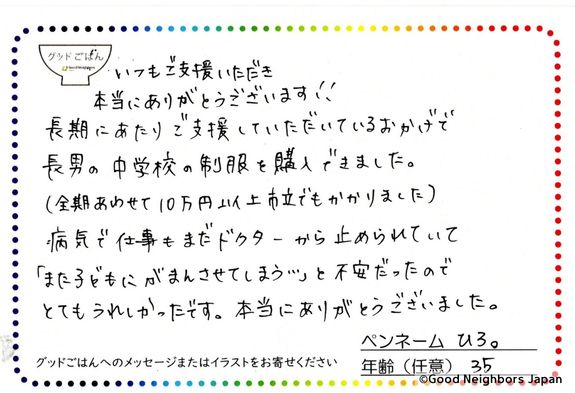 グッドごはん
いつもご支援いただき
本当にありがとうございます!!
長期にあたりご支援していただいているおかげで
長男の中学校の制服を購入できました。
(全期あわせて10万円以上市立でもかかりました)
病気で仕事もまだドクターから止められていて
「また子どもにがまんさせてしまう…」と不安だったので
とてもうれしかったです。本当にありがとうございました。
ペンネーム ひろ。
グッドごはんへのメッセージまたはイラストをお寄せください
年齢(任意) 35
©Good Neighbors Japan